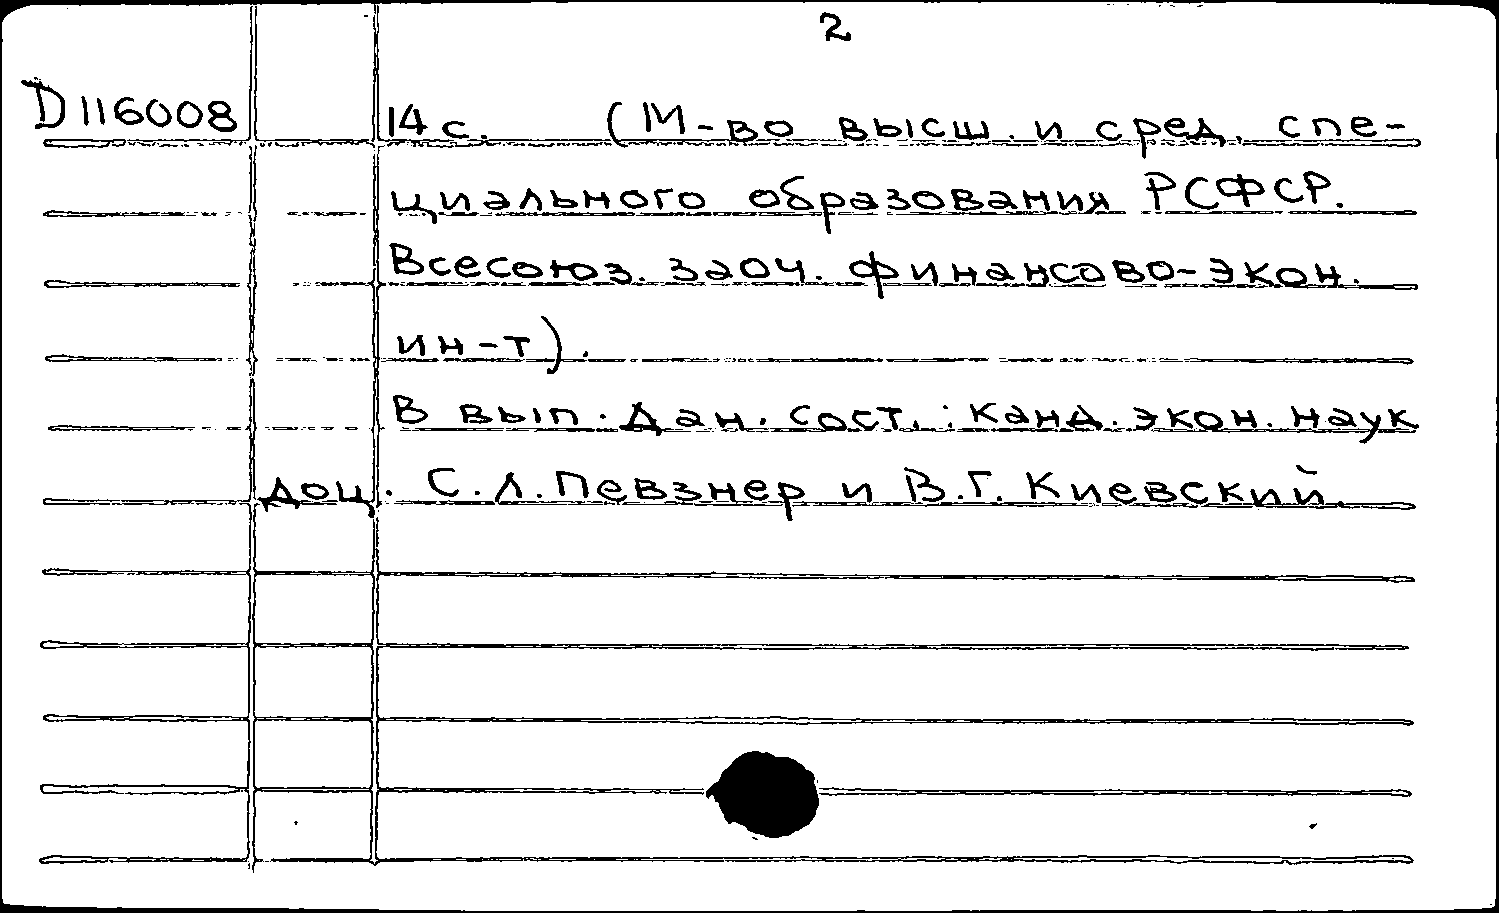 2
D116008 14 с. (М-во высш. и сред. спе-
циального образования РСФСР.
Всесоюз. заоч. финансово-экон.
ин-т).
В вып. дан. сост.: канд. экон. наук
доц. С.Л. Певзнер и В.Г. Киевский.